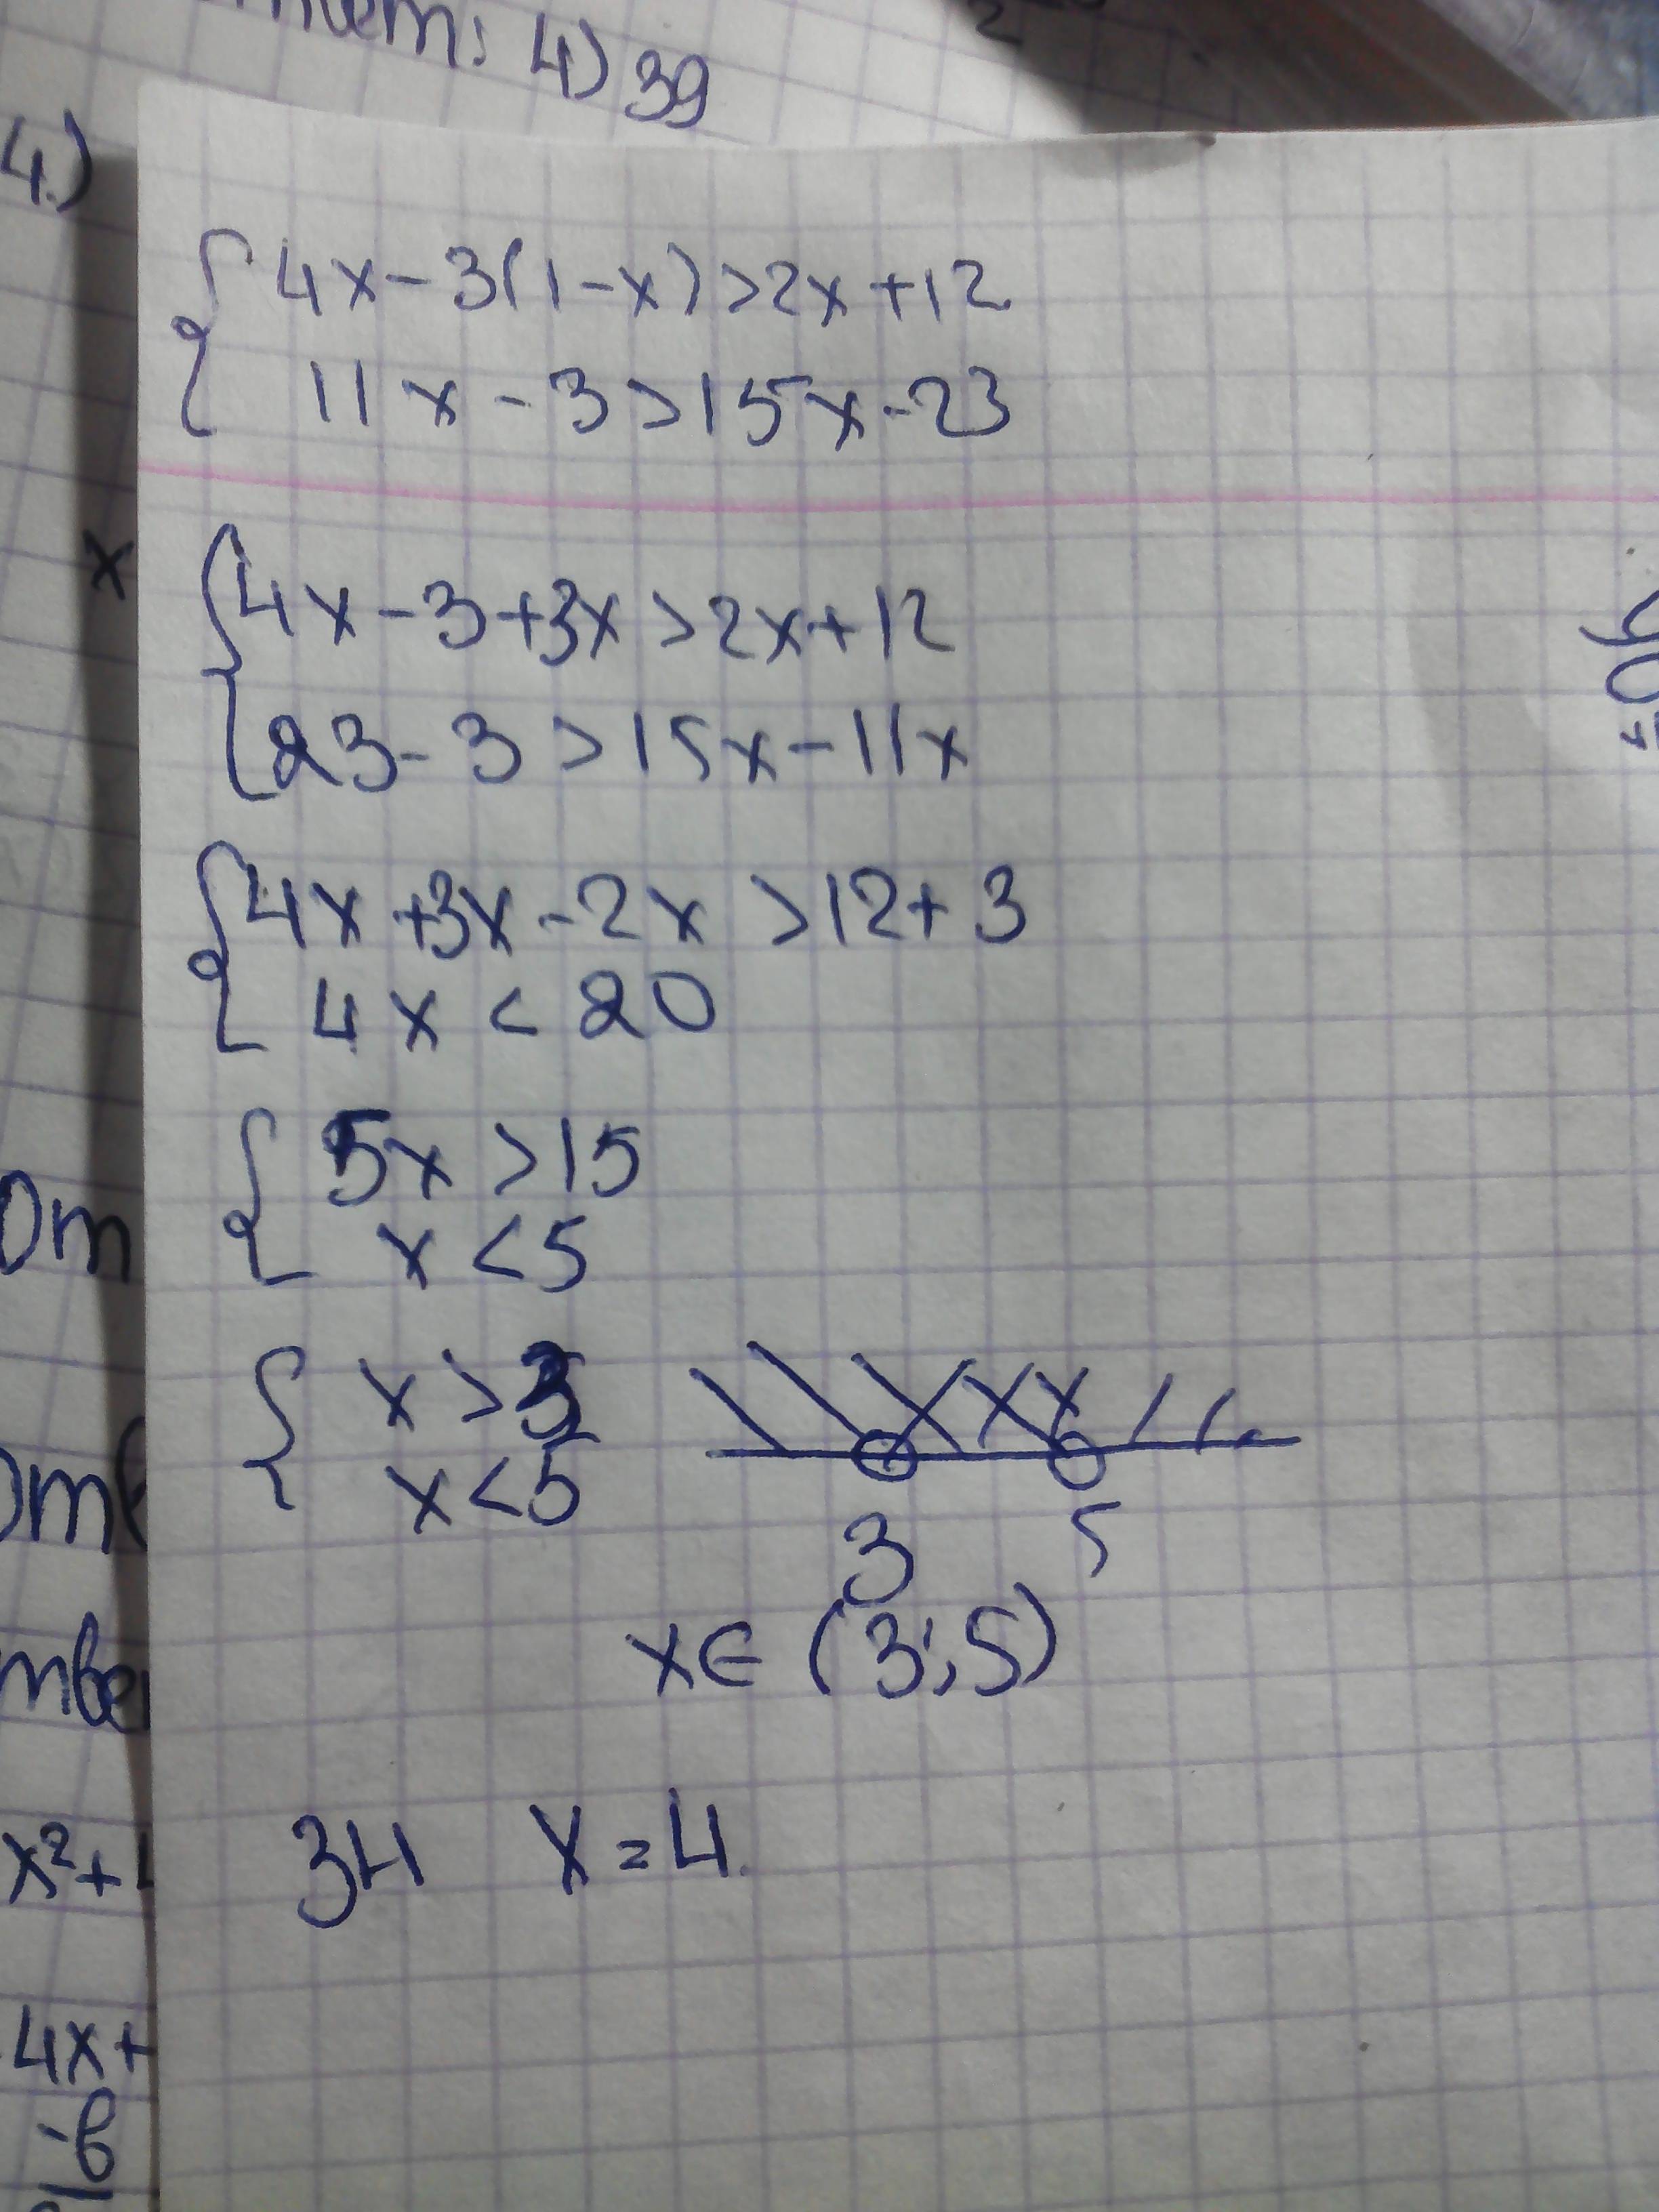 4) 39
4.)
{ 4x-3(1-x)>2x+12
11x-3>15x-23
x
{ 4x-3+3x>2x+12
23-3>15x-11x
{ 4x+3x-2x>12+3
4x<20
{ 5x>15
x<5
{ x>3
x<5
3 5
x∈(3;5)
x²+
34 x=4.
4x+
-6